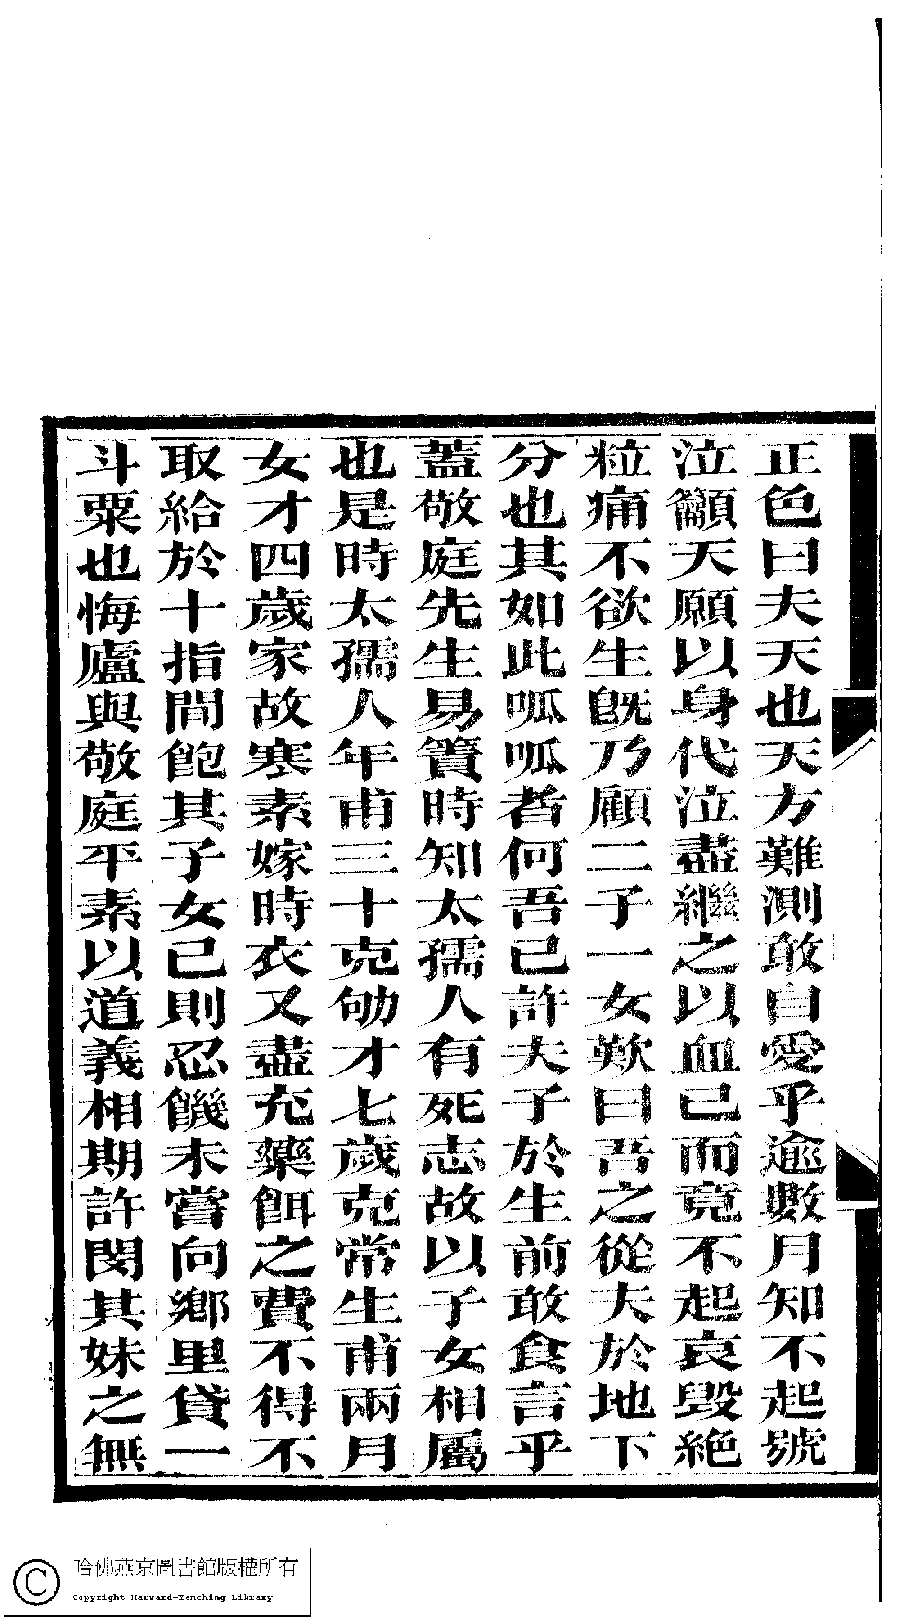 正色曰夫天也天方難測敢自愛乎逾數月知不起號
泣籲天願以身代泣盡繼之以血已而竟不起哀毀絕
粒痛不欲生旣乃顧二子一女歎曰吾之從夫於地下
分也其如此呱呱者何吾已許夫子於生前敢食言乎
蓋敬庭先生易簀時知太孺人有死志故以子女相屬
也是時太孺人年甫三十克劬才七歲克常生甫兩月
女才四歲家故寒素嫁時衣又盡充藥餌之費不得不
取給於十指間飽其子女已則忍饑未嘗向鄉里貸一
斗粟也悔廬與敬庭平素以道義相期許閔其妹之無
哈佛燕京圖書館版權所有
Copyright Harvard-Yenching Library